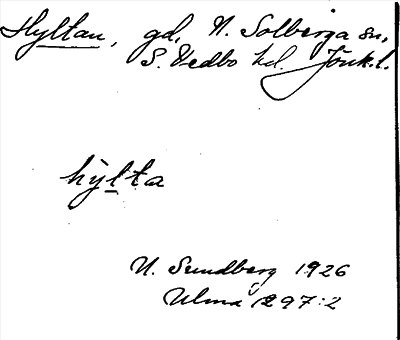 Hyltan, gd, N. Solberga sn,
S. Vedbo hd. Jönk. l.
hy̆l̲ta
N. Sundberg 1926
Ulma 297:2